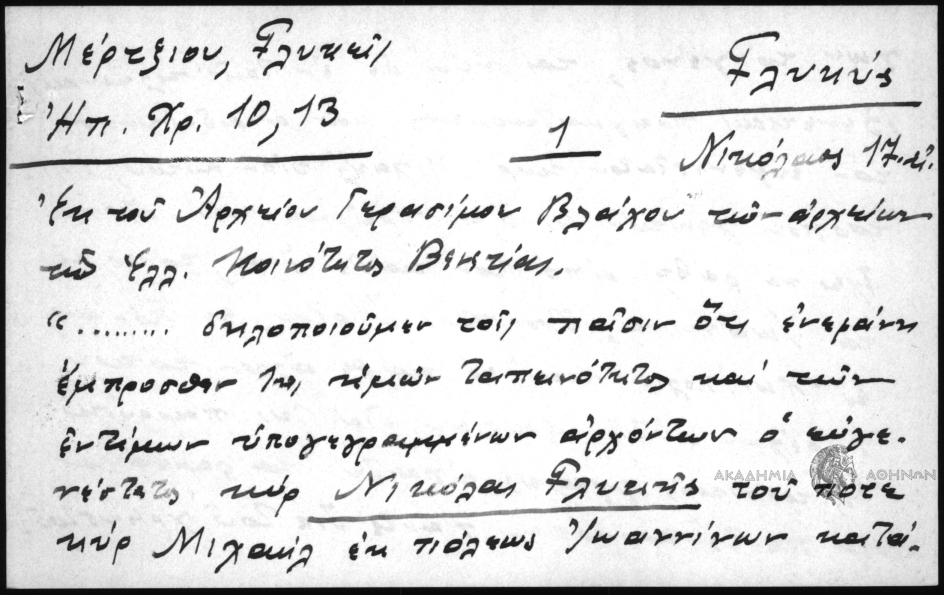 Μέρτζιου, Γλυκεῖς
Γλυκύς
Ἠπ. Χρ. 10, 13
1
Νικόλαος 17. αἰ.
Ἐκ τοῦ Ἀρχείου Γερασίμου Βλάχου τῶν ἀρχείων
τῆς Ἑλλ. Κοινότητος Βενετίας.
"......... δηλοποιοῦμεν τοῖς πᾶσιν ὅτι ἐνεφάνη
ἔμπροσθεν τῆς ἡμῶν ταπεινότητος καὶ τῶν
ἐντίμων ὑπογεγραμμένων ἀρχόντων ὁ εὐγε-
νέστατος κὺρ Νικόλαος Γλυκὺς τοῦ ποτε
κὺρ Μιχαὴλ ἐκ πόλεως Ἰωαννίνων κατά-
ΑΚΑΔΗΜΙΑ ΑΘΗΝΩΝ